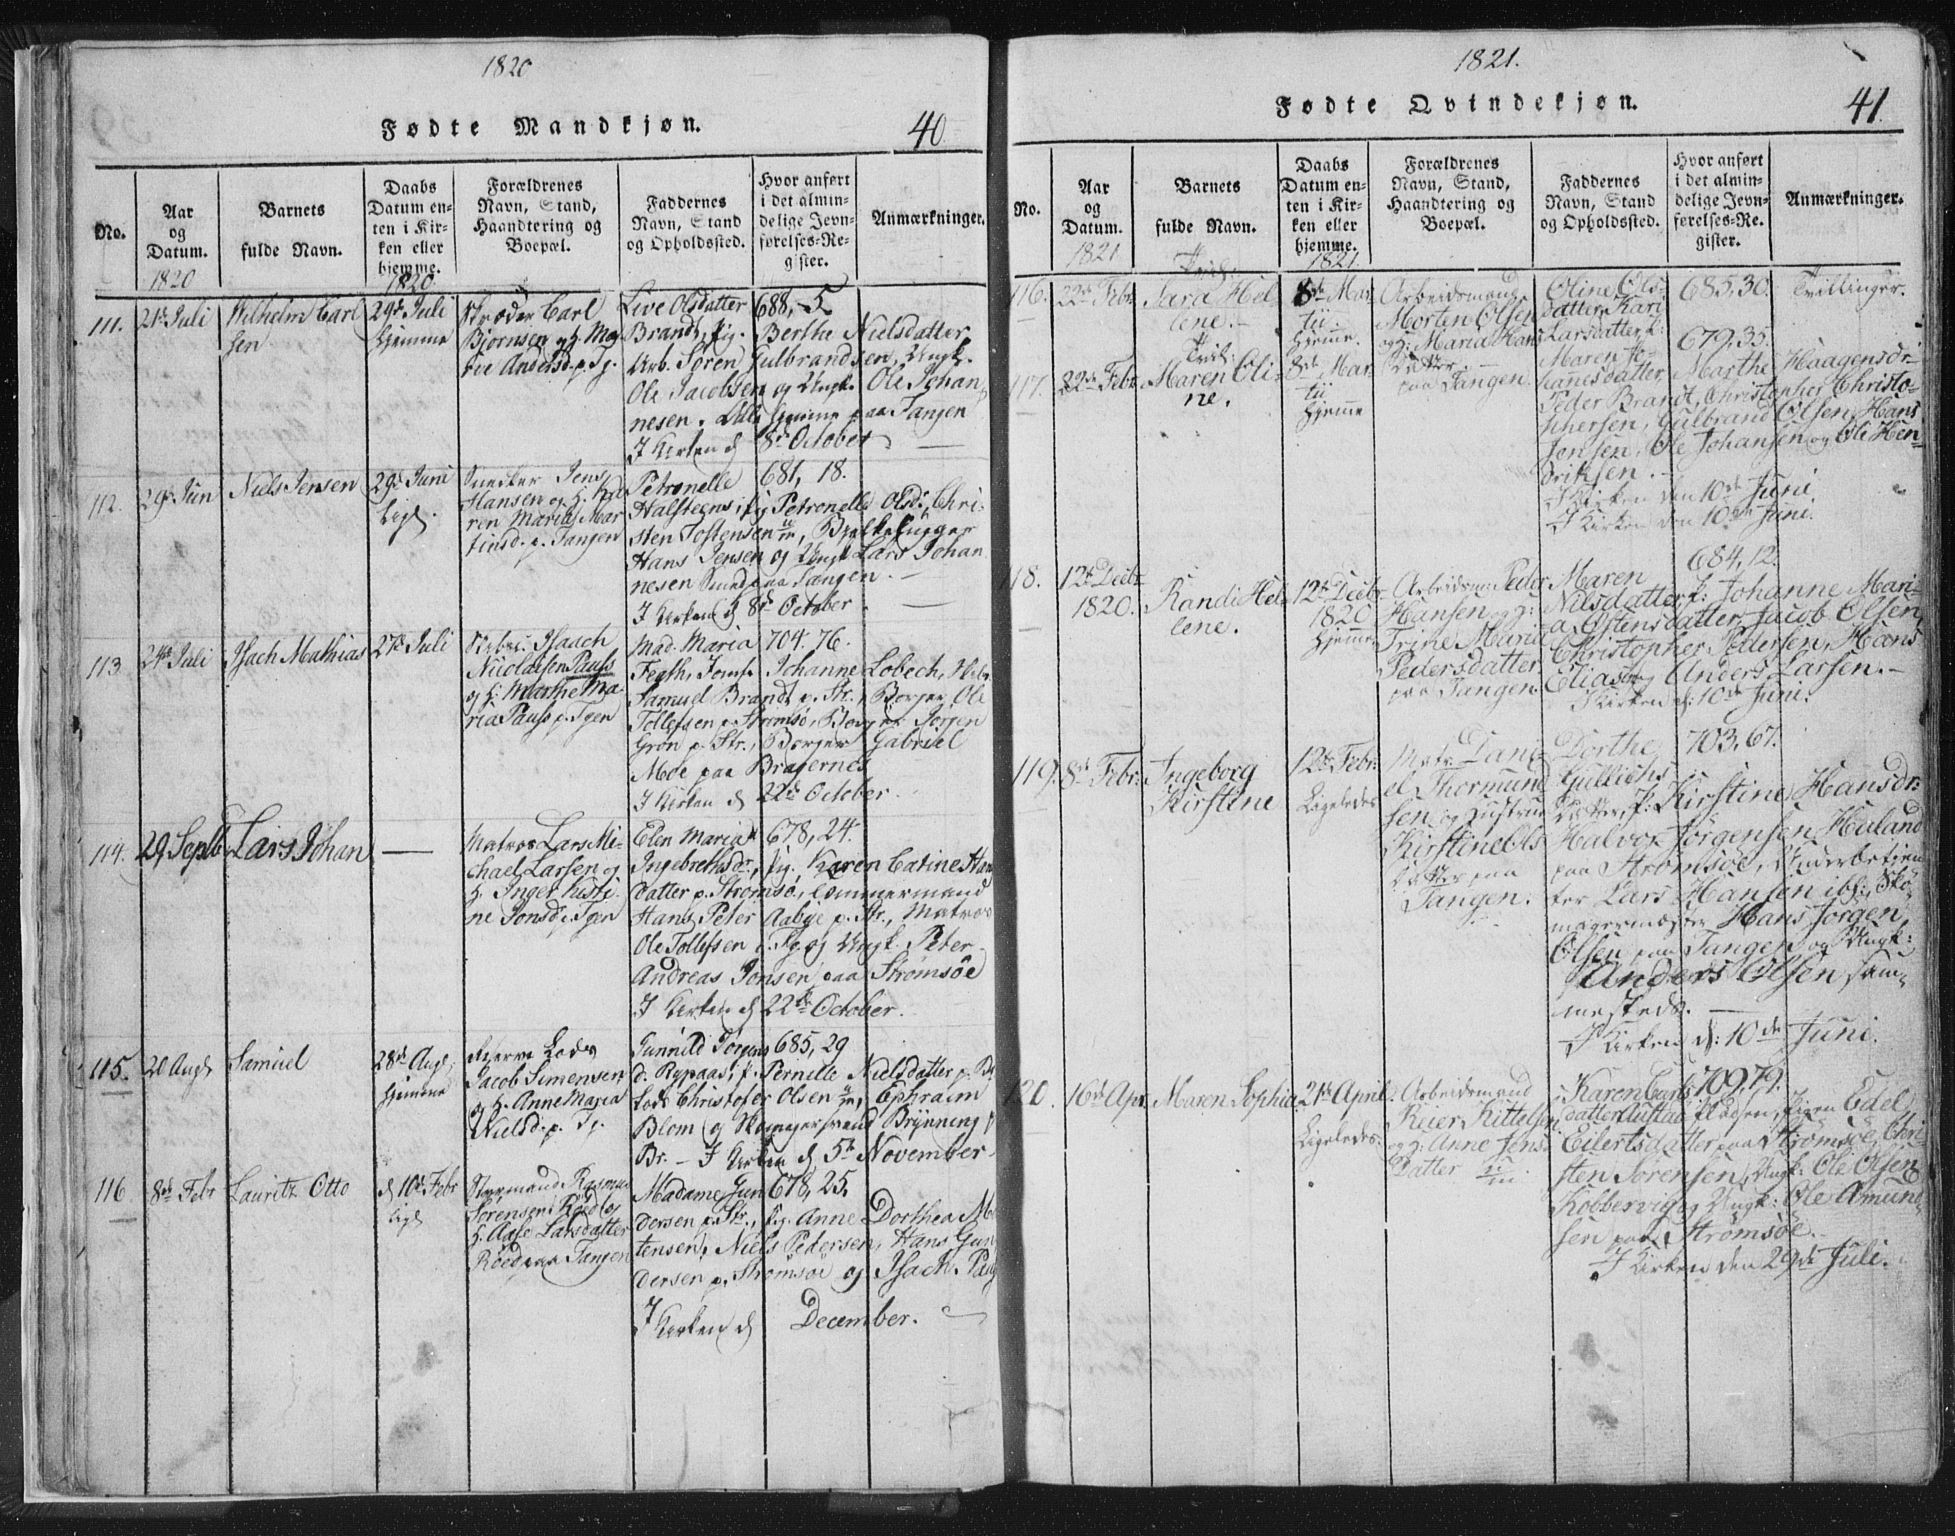 1820
Fødte Mandkjøn.
40
No.
Aar
og
Datum.
1820
Barnets
fulde Navn.
Daabs
Datum en-
ten i Kir-
ken eller
hjemme.
1820
Forældrenes
Navn, Stand,
Haandtering og
Boepæl.
Faddernes
Navn, Stand
og Opholdssted.
Hvor anført
i det almin-
delige Jevn-
førelses-Re-
gister.
Anmærkninger.
111.
21de Juli
Wilhelm Carl
sen
29de Juli
hjemme
Skræder Carl
Bjørnsen og H.
Andersd. p. Tg.
Live Olsdatter 688, 5
Brandt, pig. Berthe Nielsdatter
Arb. Søren Gulbrandsen, Ungk.
Ole Jacobsen og Ungk. Ole Johan-
nesen. Alle hjemme paa Tangen
I Kirken d 8de October
112.
29de Jun
Niels Jensen
29de Juni
Ligel.
Snedker Jens
Hansen og H. Ka
ren Maria Mar
tinsd. p. Tangen
Petronelle 681, 18.
Halsteens, pig Petronelle Olsd., Chri-
sten Tostensen
Hans Jensen og Ungk Lars Johan
nesen paa Tangen.
I Kirken d 8de October
113.
24de Juli
Isach Mathias
27de Juli
Isaach
Nicolaisen Pauss
og H. Marthe Ma
ria Pauss p. Tgen
Mad. Maria 704. 76.
Feght, Jomfr Johanne Lobech,
Samuel Brandt p. Str., Borger Ole
Tollefsen p. Strømsø, Borger Jørgen
Grøn p. Str., Borger Gabriel
Moe paa Bragernes
I Kirken d 22de October
114.
29 Septb
Lars Johan
—
Matros Lars Mi-
chael Larsen og
H. Inger Kisti-
ne Jonsd. p. Tgen
Elen Maria 678, 24.
Ingebrethsdr., pig. Karen Catine Hans
datter p. Strømsø, Tømmermand
Hans Peter Aabye p. Str., Matros
Ole Tollefsen p. Tg. og Ungk. Peter
Andreas Jonsen paa Strømsöe
I Kirken d 22de October.
115.
20 Augs
Samuel
28de Aug,
hjemme
Reserve Lods
Jacob Simensen
og H. Anne Maria
Nielsd. p. Tg.
Gunnild Jørgens 685, 29
d. Rypaas, p. Pernille Nielsdatter p. Br
Lods Christofer Olsen, Ephraim
Blom og Brynning p
Br. – I Kirken d 5te November
116
8de Febr
Lauritz Otto
d 10de Febr
ligel
Styrmand Rasmus
Sørensen Röed og
H. Aase Larsdatter
Röed paa Tangen
Madame Gun 678, 25.
dersen p. Str., pig. Anne Dorthea M
tensen, Niels Pedersen, Hans Gun
dersen p. Strømsöe og Isach Paus
I Kirken d December.
1821.
Fødte Qvindekjøn.
41
No.
Aar
og
Datum.
1821
Barnets
fulde Navn.
Daabs
Datum en-
ten i Kir-
ken eller
hjemme.
1821.
Forældrenes
Navn, Stand,
Haandtering og
Boepæl.
Faddernes
Navn, Stand
og Opholdssted.
Hvor anført
i det almin-
delige Jevn-
førelses-Re-
gister.
Anmærkninger.
116.
22de Febr.
Tvil:
Sara Hel
lene.
8de Mar-
tii
hjeme.
Arbeidsmand
Morten Olsen
og H: Maria Hans
Datter
paa Tangen.
Oline Ols-
datter, Kari
Larsdatter
Maren Jo-
hanesdatter,
685, 30.
679, 35.
Tvillinger.
117.
22de Febr.
Tvil:
Maren Oli-
ne.
8de Mar-
tii
hjeme
Marthe Haagensdr:
Peder Brandt, Christopher Christo-
phersen, Gulbrand Olsen, Hans
Jensen, Ole Johansen og Ole Hen-
driksen.
I Kirken den 10de Juni.
I Kirken den 10de Juni.
118.
12te Decbr
1820.
Randi Hel-
lene.
12te Decbr.
1820
hjeme
Arbeidsm Peder
Hansen og H:
Trine Maria
Pedersdatter
paa Tangen
Maren 684, 12.
Nilsdatter, p: Johanne Mari-
a Ostensdatter, Jacob Olsen
Christopher Pedersen, Hans
Elias og Anders Larsen.
I Kirken d: 10de Juni.
119.
8de Febr.
Ingeborg
Kirstine
12te Febr.
Ligeledes
Matr. Dani-
el Thormund
sen og Hustrue
Kirstine Ols
Datter paa
Tangen.
Dorthe 703, 67.
Gullichs
Datter, P: Kirstine Hansdr:
Halvor Jørgensen Haland
paa Strømsöe, Underbetjen
ter Lars Hansen ibd., Sko-
magermester Hans Jørgen
Olsen paa Tangen og Ungk:
Anders Olsen sam-
mesteds.
I Kirken d: 10de Juni.
120.
16de Apr.
Maren Sophia
21de April.
Ligeledes.
Arbeidsmand
Reier Kittelsen
og H: Anne Jens-
Datter
Karen Carls 709. 79.
datter Austad, Pigen Edel
Eilertsdatter paa Strømsöe, Chri-
sten Sørensen, Ungk: Ole Olsen
Kobbervig og Ungk: Ole Amund
sen paa Strømsöe.
I Kirken den 29de Juli.